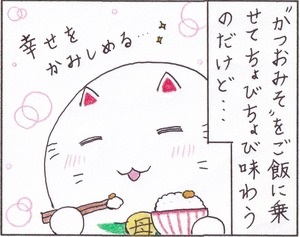 “かつおみそ”をご飯に乗
せてちょびちょび味わう
のだけど・・・
幸せを
かみしめる・・・
母